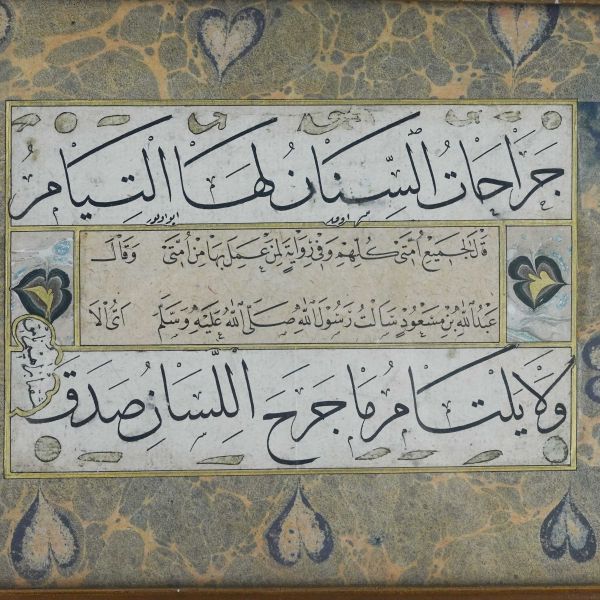 جَرَاحَاتُ السِّنَانِ لَهَا التِيَامُ
قَالَ لِجَمِيعِ أُمَّتِي كُلِّهِمْ وَفِي رِوَايَةٍ لِمَنْ عَمِلَ بِهَا مِنْ أُمَّتِي وَقَالَ
عَبْدُ اللهِ بْنُ مَسْعُودٍ سَاَلْتُ رَسُولَ اللهِ صَلَّى اللهُ عَلَيْهِ وَسَلَّمَ اَيُّ الْاَ
وَلَا يَلْتَامُ مَا جَرَحَ اللِّسَانُ صَدَقَ